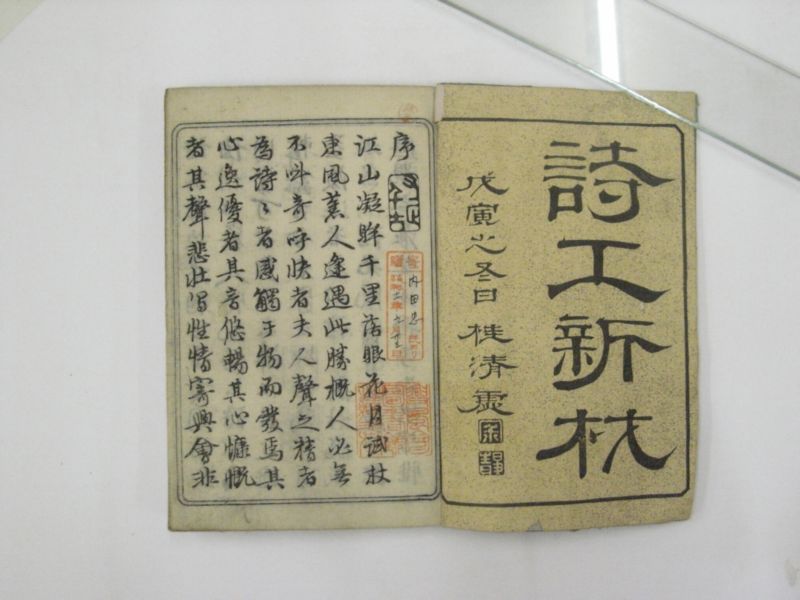 詩工新材
戊寅之冬日 桂清
序
江山凝眸千里落眼花月試杖
東風薫人逢遇此勝概人必無
不呌奇呼快者夫人聲之精者
為詩々者感觸于物而發焉其
心逸優者其音悠暢其心慷慨
者其聲悲壮写性情寄興會非